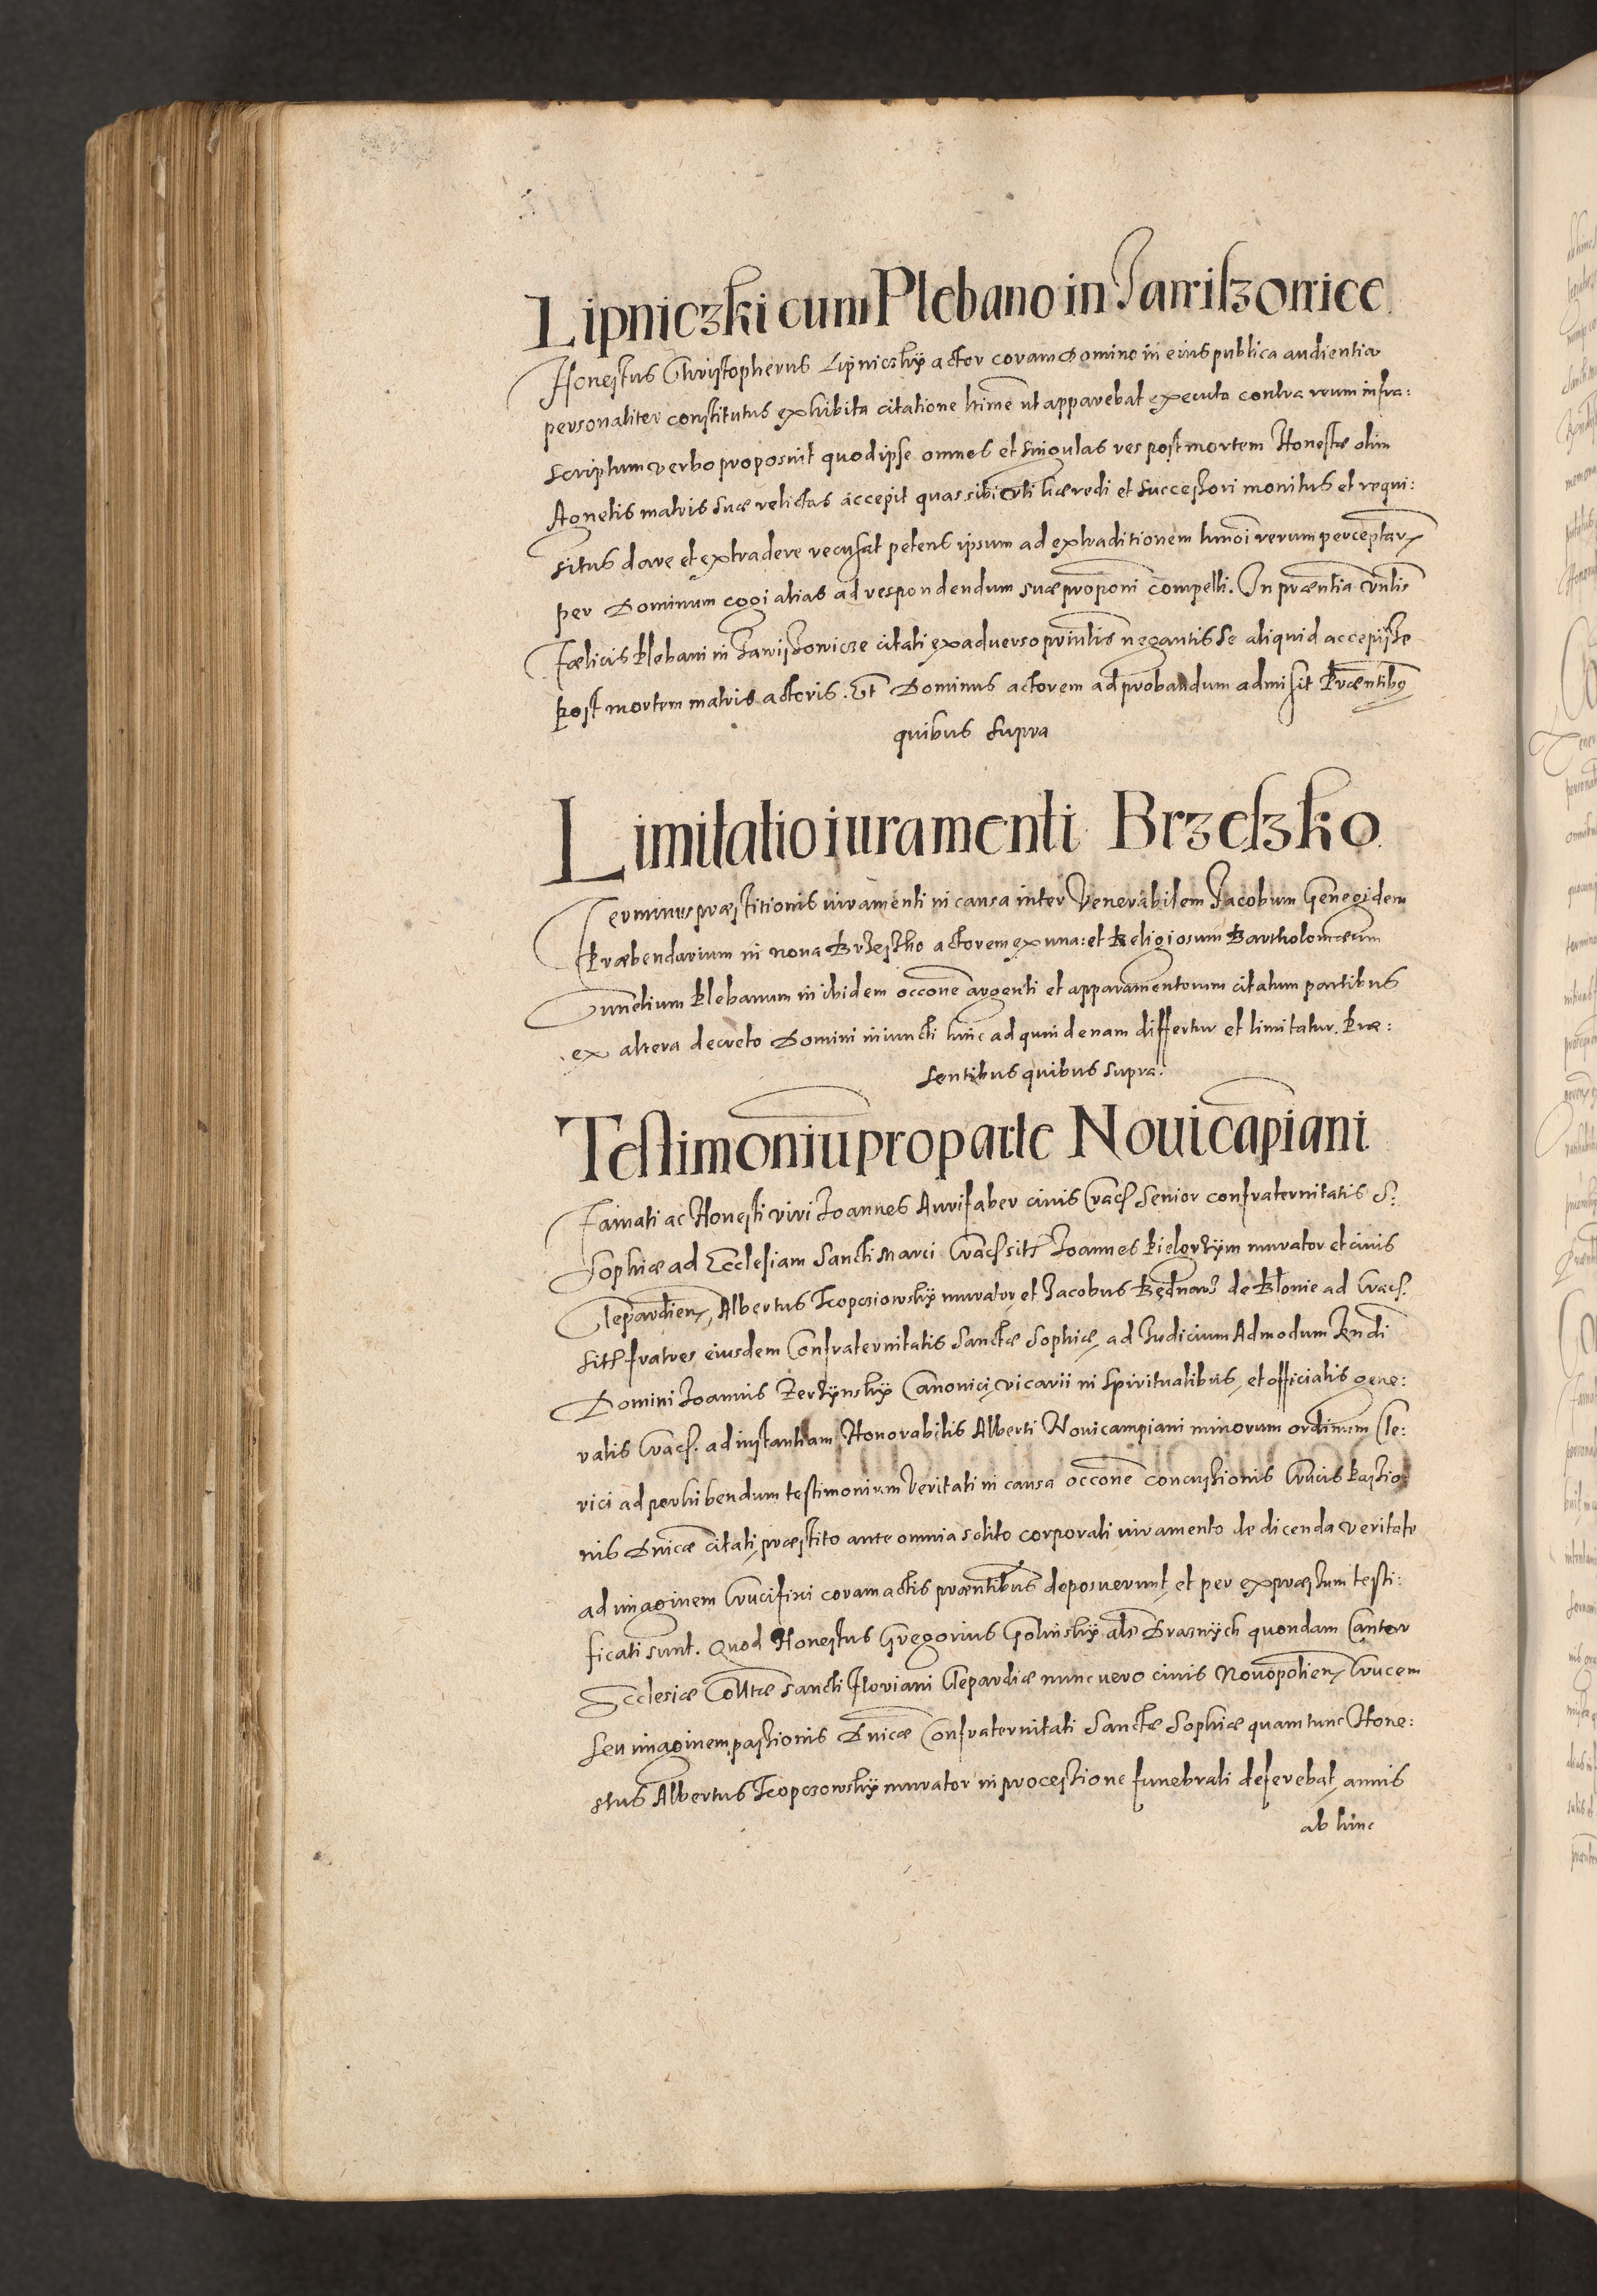 Lipniczki cum Plebano in Jawiszowice
Honestus Christopherus Lipniczkÿ actor coram Domino in eius publica audientia
personaliter constitutus exhibita citatione ltime ut apparebat executa contra reum infra:
scriptum verbo proposuit quod ipse omnes et singulas res post mortem Honestæ olim
Agnetis matris suæ relictas accepit quas sibi uti hæredi et successori monitus et requi:
situs dare et extradere recusat petens ipsum ad extraditionem hmoi rerum perceptar
per Dominum cogi alias ad respondendum suæ proponi compelli. In præntia Vnlis
Fælicis Plebani in Jawiszowicze citati ex adverso priulis negantis se aliquid accepisse
post mortem matris actoris. Et Dominus actorem ad probandum admisit Præntibus
quibus supra
Limitatio iuramenti Brzeszko
Terminus præstitionis iuramenti in causa inter Venerabilem Jacobum
Præbendarium in nova Brzesko actorem ex una: et Religiosum Bartholomæum
Plebanum in ibidem occone argenti et apparamentorum citatum partibus
ex altera decreto Domini iniuncti hinc ad quindenam differtur et limitatur. Præ:
sentibus quibus supra.
Testimoniu pro parte Novicapiani
Famati ac Honesti viri Joannes Aurifaber civis Crac Senior confraternitatis S.
Sophiæ ad Ecclesiam Sancti Marci Crac sit Joannes Pielgrzÿm murator et civis
Clepardien, Albertus Tcopczowskÿ murator, et Jacobus Bednarz de Blonie ad Crac.
sit fratres eiusdem Confraternitatis Sanctæ Sophiæ, ad Judicium Admodum Rndi
Domini Joannis Zerzÿnskÿ Canonici, vicarii in Spiritualibus, et officialis gene:
ralis Crac. ad instantiam Honorabilis Alberti Novicampiani minorum ordinum Cle:
rici ad perhibendum testimonium Veritati in causa occone concussionis Crucis Passio:
nis Dnicæ citati, præstito ante omnia solito corporali iuramento de dicenda veritate
ad imaginem Crucifixi coram actis præntibus deposuerunt, et per expræssum testi:
ficati sunt. Quod Honestus Gregorius Golinskÿ als Drarnÿch quondam Cantor
Ecclesiæ Colltæ Sancti Floriani Clepardiæ nunc vero civis Novopolien, Crucem
seu imaginem passionis Dnicæ Confraternitati Sanctæ Sophiæ quam tunc Hone:
stus Albertus Tcopczowskÿ murator in processione funebrali deferebat, annis
ab hinc